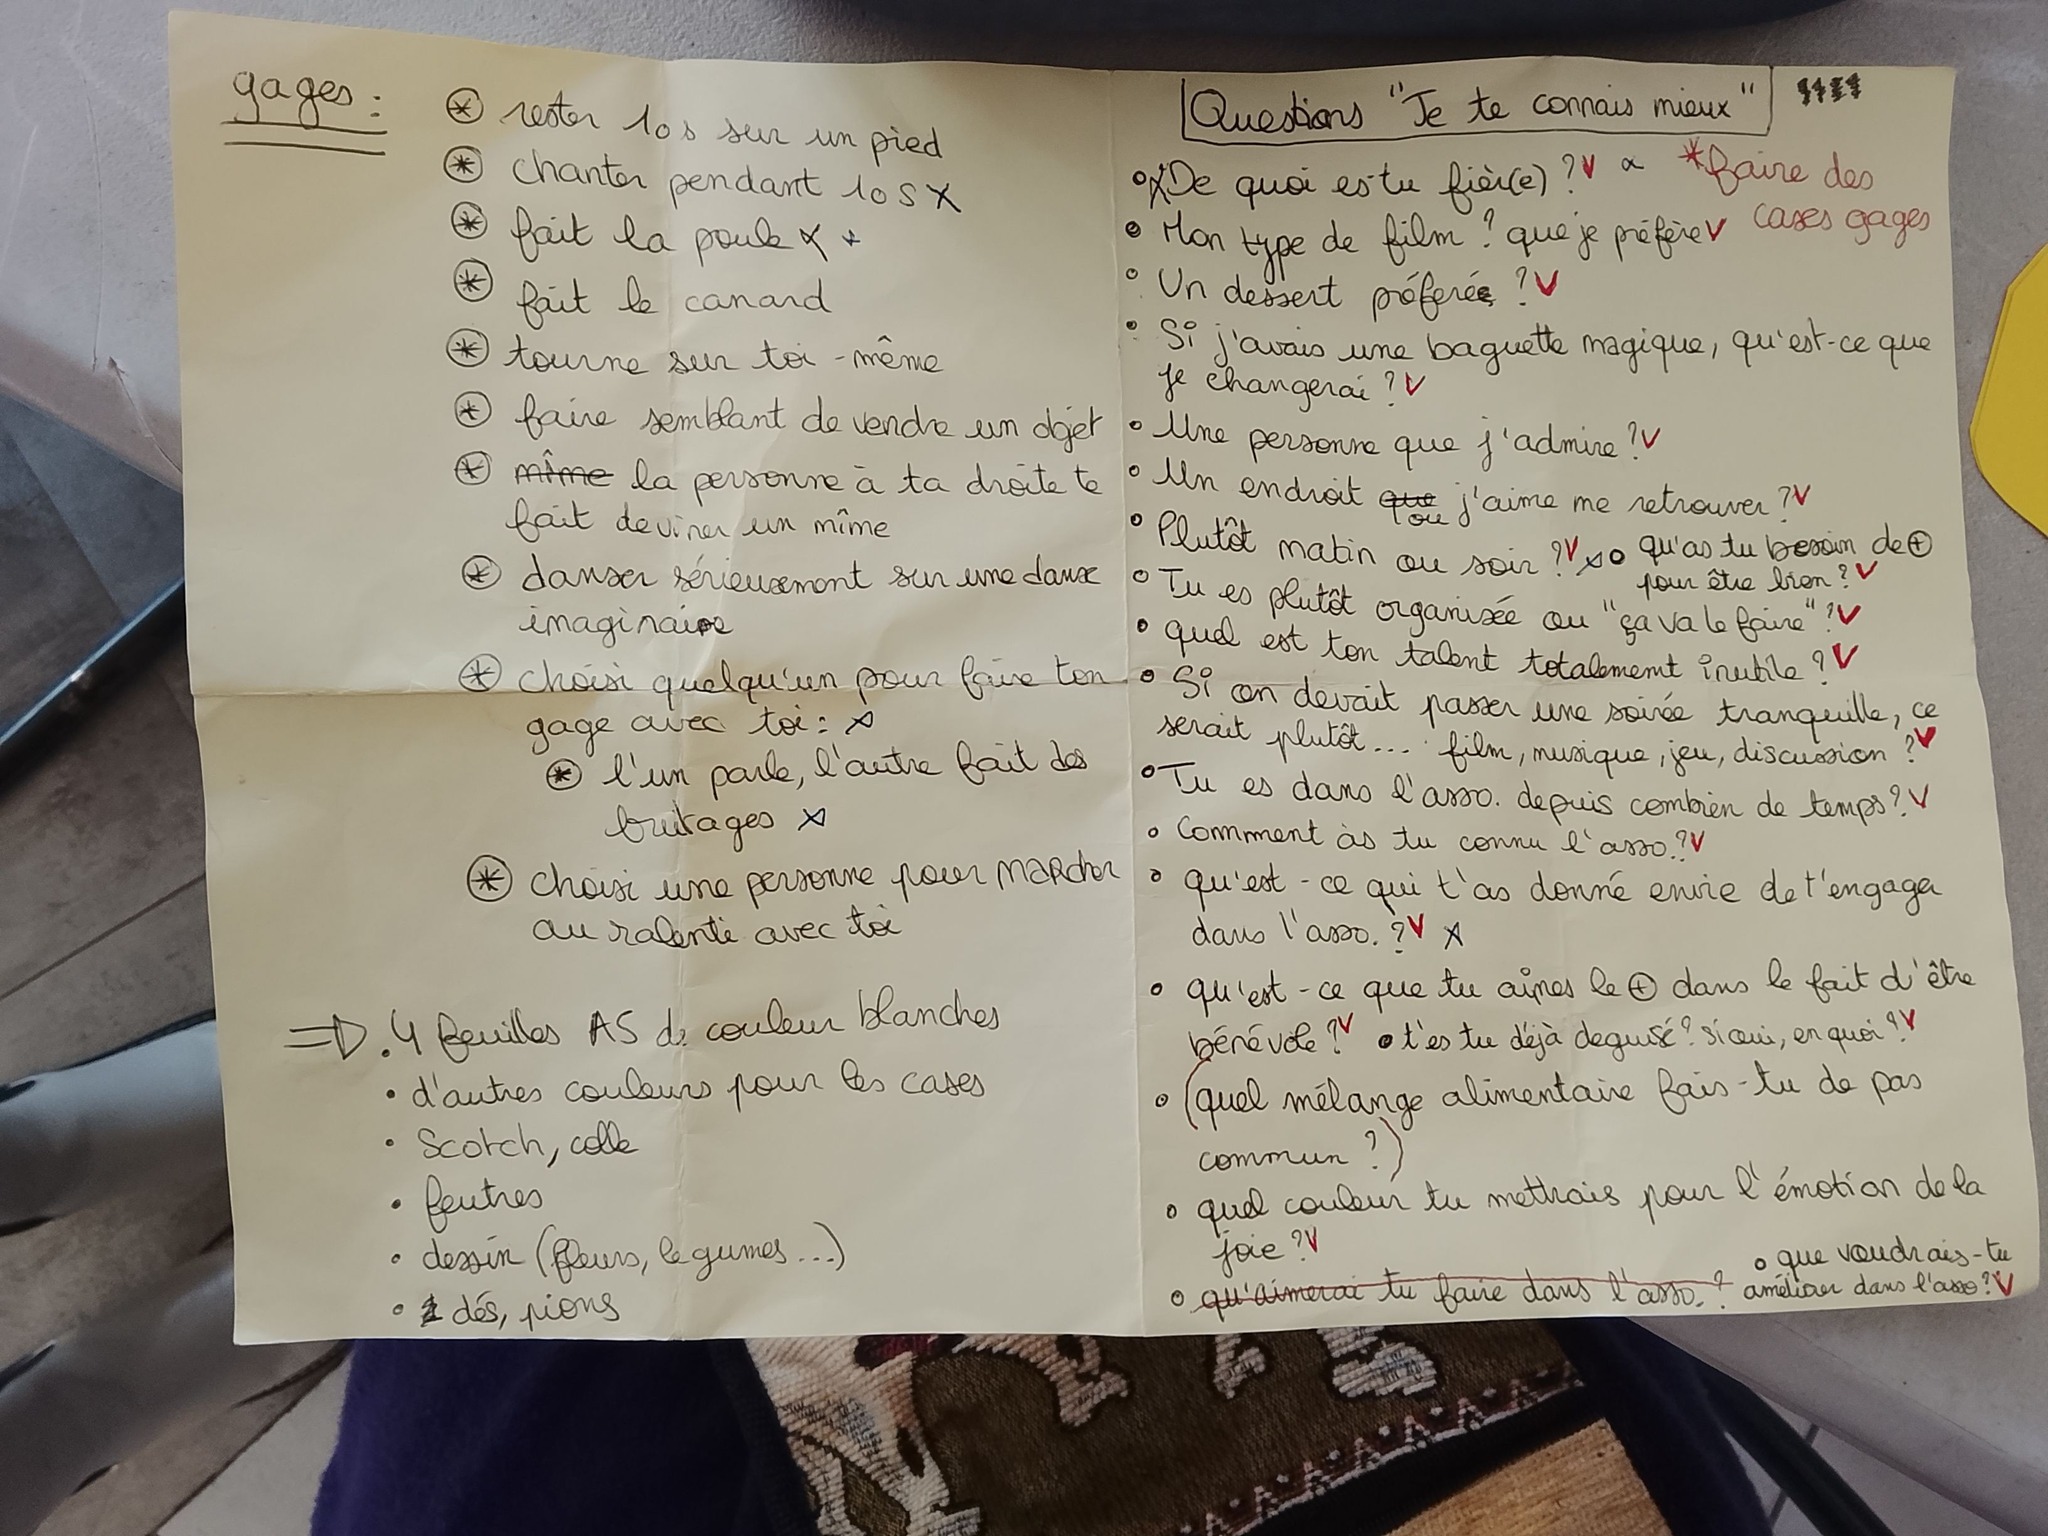 gages :
* rester 10s sur un pied
* chanter pendant 10s x
* fait la poule x +
* fait le canard
* tourne sur toi-même
* faire semblant de vendre un objet
* mîme la personne à ta droite te
fait deviner un mîme
* danser sérieusement sur une danse
imaginaire
* choisi quelqu'un pour faire ton
gage avec toi : x
* l'un parle, l'autre fait des
bruitages x
* choisi une personne pour marcher
au ralenti avec toi
=> • 4 feuilles A5 de couleur blanches
• d'autres couleurs pour les cases
• Scotch, colle
• feutres
• dessin (fleurs, légumes...)
• dés, pions
Questions "Je te connais mieux"
* faire des
cases gages
• x De quoi es-tu fièr(e) ? v
• Mon type de film ? que je préfère v
• Un dessert préféré ? v
• Si j'avais une baguette magique, qu'est-ce que
je changerai ? v
• Une personne que j'admire ? v
• Un endroit que où j'aime me retrouver ? v
• Plutôt matin ou soir ? v x
• qu'as tu besoin de +
pour être bien ? v
• Tu es plutôt organisée ou "ça va le faire" ? v
• quel est ton talent totalement inutile ? v
• Si on devait passer une soirée tranquille, ce
serait plutôt... film, musique, jeu, discussion ? v
• Tu es dans l'asso. depuis combien de temps ? v
• Comment às tu connu l'asso. ? v
• qu'est-ce qui t'as donné envie de t'engager
dans l'asso. ? v x
• qu'est-ce que tu aimes le + dans le fait d'être
bénévole ? v • t'es tu déjà deguisé ? si oui, en quoi ? v
• (quel mélange alimentaire fais-tu de pas
commun ?)
• quel couleur tu mettrais pour l'émotion de la
joie ? v
• qu'aimerai tu faire dans l'asso. ?
• que voudrais-tu
améliorer dans l'asso ? v